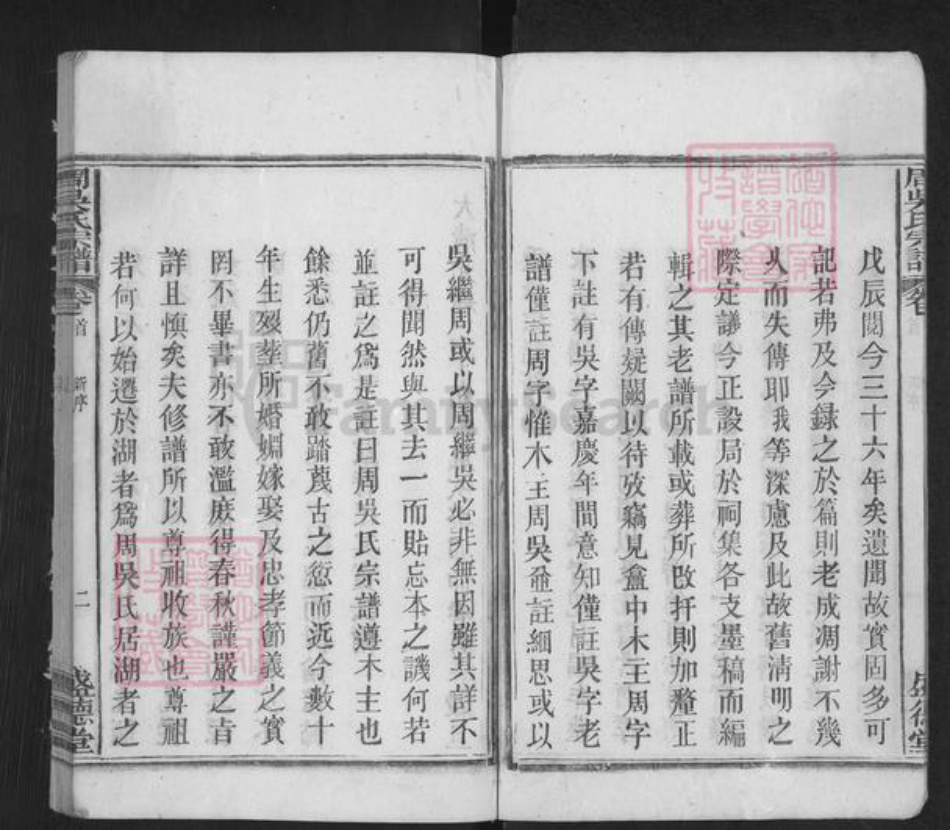 戊辰閱今三十六年矣遺聞故實固多可
記若弗及今録之於篇則老成凋謝不幾
久而失傳耶我等深慮及此故舊清明之
際定議今正設局於祠集各支墨稿而編
輯之其老譜所載或葬所改扦則加釐正
若有傳疑闕以待攷竊見龕中木主周字
下註有吳字嘉慶年間意知僅註吳字老
譜僅註周字惟木主周吳並註細思或以
吳繼周或以周繼吳必非無因雖其詳不
可得聞然與其去一而貽忘本之譏何若
並註之為是註曰周吳氏宗譜遵木主也
餘悉仍舊不敢踏蔑古之愆而近今數十
年生歿塟所婚姻嫁娶及忠孝節義之實
罔不畢書亦不敢濫庶得春秋謹嚴之旨
詳且慎矣夫修譜所以尊祖收族也尊祖
若何以始遷於湖者為周吳氏居湖者之
周吳氏宗譜
卷首
新序
二
盛德堂
FamilySearch